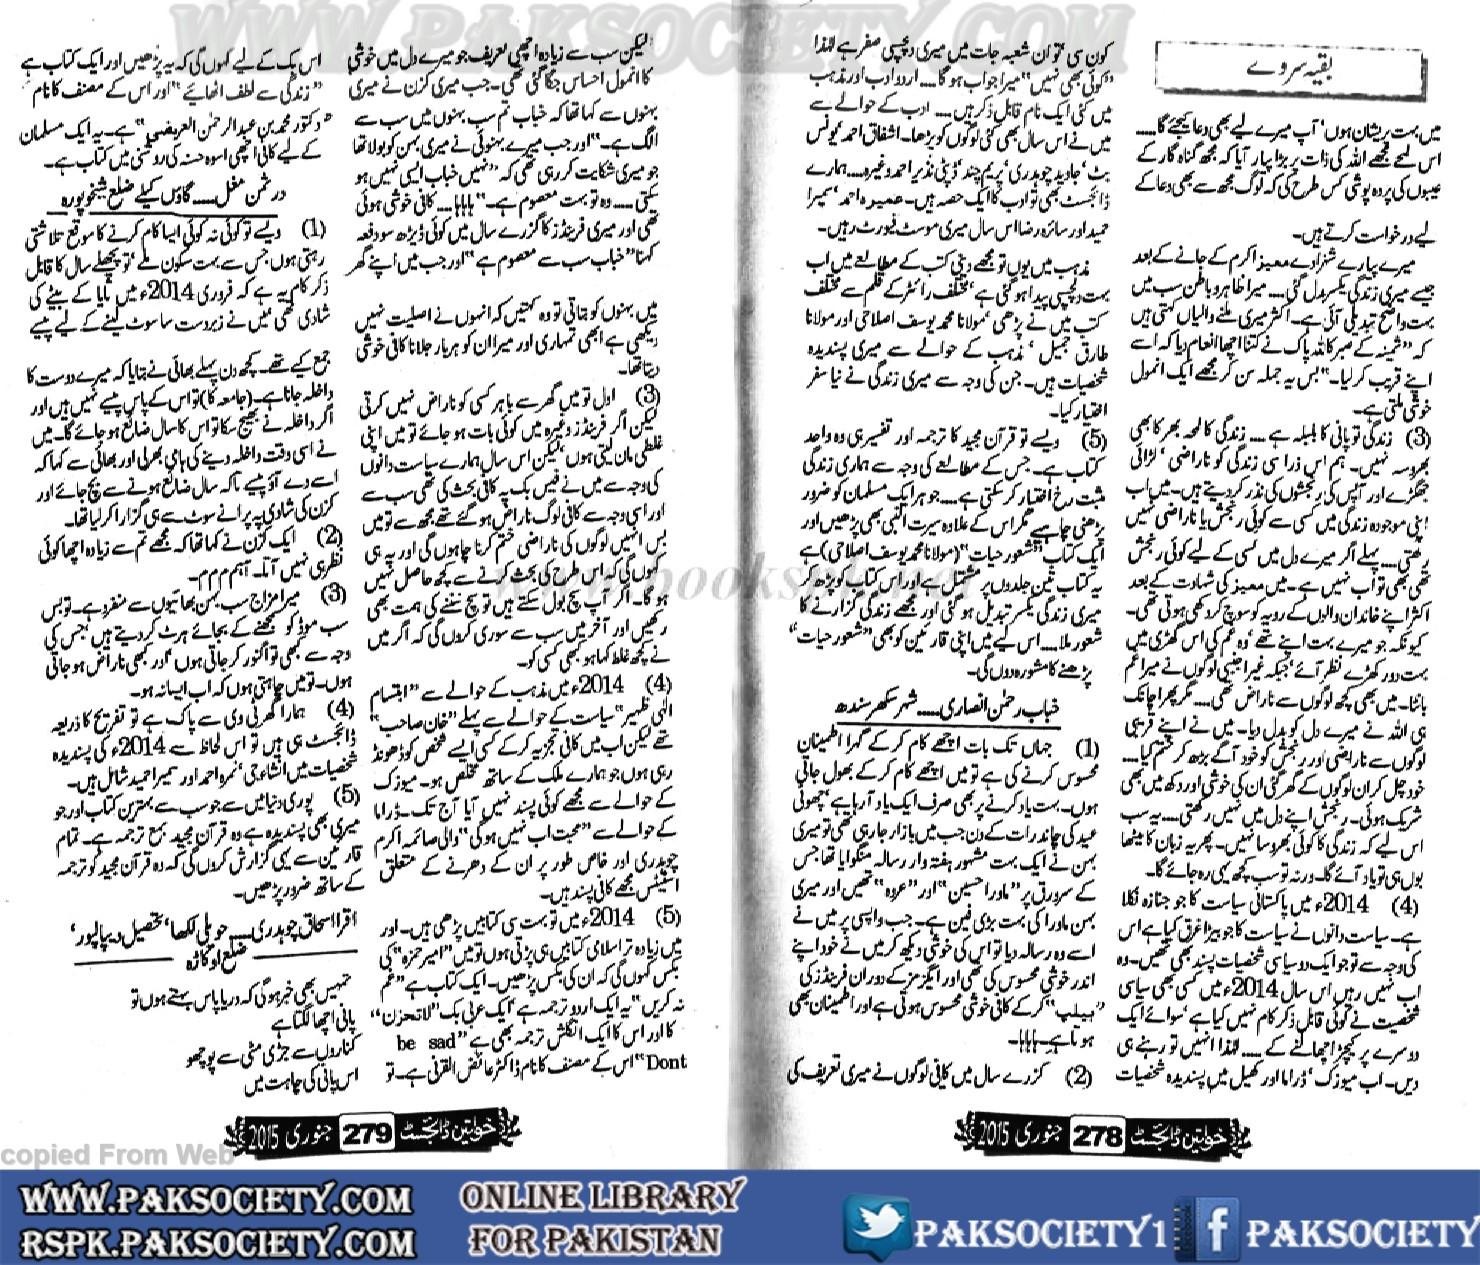 بقیہ سروے
میں بہت پریشان ہوں‘ آپ میرے لیے بھی دعا کیجئے گا.....
اس لمحے مجھے اللہ کی ذات پر بڑا پیار آیا کہ مجھ گناہ گار کے
عیبوں کی پردہ پوشی کس طرح کی کہ لوگ مجھ سے بھی دعا کے
لیے درخواست کرتے ہیں۔
میرے پیارے شہزادے معیز اکرم کے جانے کے بعد
جیسے میری زندگی یکسر بدل گئی..... میرا ظاہر و باطن سب میں
بہت واضح تبدیلی آئی ہے۔ اکثر میری ملنے والیاں کہتی ہیں
کہ ”ثمینہ کے صبر کا اللہ پاک نے کتنا اچھا انعام دیا کہ اسے
اپنے قریب کر لیا۔“ بس یہ جملہ سن کر مجھے ایک انمول
خوشی ملتی ہے۔
(3) زندگی تو پانی کا بلبلہ ہے..... زندگی کا لمحہ بھر کا بھی
بھروسہ نہیں۔ ہم اس ذرا سی زندگی کو ناراضی‘ لڑائی
جھگڑے اور آپس کی رنجشوں کی نذر کر دیتے ہیں۔ میں اب
اپنی موجودہ زندگی میں کسی سے کوئی رنجش یا ناراضی نہیں
رکھتی..... پہلے اگر میرے دل میں کسی کے لیے کوئی رنجش
تھی بھی تو اب نہیں ہے۔ میں معیز کی شہادت کے بعد
اکثر اپنے خاندان والوں کے رویہ کو سوچ کر دکھی ہوتی تھی۔
کیونکہ جو میرے بہت اپنے تھے‘ وہ غم کی اس گھڑی میں
بہت دور کھڑے نظر آئے‘ جبکہ غیر اجنبی لوگوں نے میرا غم
بانٹا۔ میں بھی کچھ لوگوں سے ناراض تھی..... مگر پھر اچانک
ہی اللہ نے میرے دل کو بدل دیا۔ میں نے اپنے قریبی
لوگوں سے ناراضی اور رنجش کو خود آگے بڑھ کر ختم کیا.....
خود چل کر ان لوگوں کے گھر گئی ان کی خوشی اور دکھ میں بھی
شریک ہوئی۔ رنجش اپنے دل میں نہیں رکھتی..... یہ سب
اس لیے کہ زندگی کا کوئی بھروسا نہیں۔ پھر یہ زبان کا میٹھا
بول ہی تو یاد آئے گا۔ ورنہ تو سب کچھ یہی رہ جائے گا۔
(4) 2014ء میں پاکستانی سیاست کا جو جنازہ نکلا
ہے۔ سیاست دانوں نے سیاست کا جو بیڑا غرق کیا ہے اس
کی وجہ سے تو جو ایک دو سیاسی شخصیات پسند بھی تھیں۔ وہ
اب نہیں رہیں اس سال 2014ء میں کسی بھی سیاسی
شخصیت نے کوئی قابل ذکر کام نہیں کیا ہے‘ سوائے ایک
دوسرے پر کیچڑ اچھالنے کے..... لہٰذا انہیں تو رہنے ہی
دیں۔ اب میوزک‘ ڈراما اور کھیل میں پسندیدہ شخصیات
کون سی تو ان شعبہ جات میں میری دلچسپی صفر ہے لہٰذا
”کوئی بھی نہیں“ میرا جواب ہو گا..... اردو ادب اور مذہب
میں کئی ایک نام قابل ذکر ہیں..... ادب کے حوالے سے
میں نے اس سال بھی کئی لوگوں کو پڑھا۔ اشفاق احمد‘ یونس
بٹ‘ جاوید چوہدری‘ پریم چند‘ ڈپٹی نذیر احمد وغیرہ..... ہمارے
ڈائجسٹ بھی تو ادب کا ایک حصہ ہیں۔ عمیرہ احمد‘ سمیرا
حمید اور سائرہ رضا اس سال میری موسٹ فیورٹ رہیں۔
مذہب میں یوں تو مجھے دینی کتب کے مطالعے میں اب
بہت دلچسپی پیدا ہو گئی ہے‘ مختلف رائٹر کے قلم سے مختلف
کتب میں نے پڑھی‘ مولانا محمد یوسف اصلاحی اور مولانا
طارق جمیل‘ مذہب کے حوالے سے میری پسندیدہ
شخصیات ہیں۔ جن کی وجہ سے میری زندگی نے نیا سفر
اختیار کیا۔
(5) ویسے تو قرآن مجید کا ترجمہ اور تفسیر ہی وہ واحد
کتاب ہے۔ جس کے مطالعے کی وجہ سے ہماری زندگی
مثبت رخ اختیار کر سکتی ہے..... جو ہر ایک مسلمان کو ضرور
پڑھنی چاہیے مگر اس کے علاوہ سیرت النبی بھی پڑھیں اور
ایک کتاب ”شعور حیات“ (مولانا محمد یوسف اصلاحی) ہے
یہ کتاب تین جلدوں پر مشتمل ہے اور اس کتاب کو پڑھ کر
میری زندگی یکسر تبدیل ہو گئی اور مجھے زندگی گزارنے کا
شعور ملا..... اس لیے میں اپنی قارئین کو بھی ”شعور حیات“
پڑھنے کا مشورہ دوں گی۔
خباب رحمٰن انصاری..... شہر سکھر سندھ
(1) جہاں تک بات اچھے کام کر کے گہرا اطمینان
محسوس کرنے کی ہے تو میں اچھے کام کر کے بھول جاتی
ہوں۔ بہت یاد کرنے پر بھی صرف ایک یاد آ رہا ہے‘ چھوٹی
عید کی چاند رات کے دن جب میں بازار جا رہی تھی تو میری
بہن نے ایک بہت مشہور ہفتہ وار رسالہ منگوایا تھا جس
کے سرورق پر ”ماورا حسین“ اور ”عروہ“ تھیں اور میری
بہن ماورا کی بہت بڑی فین ہے۔ جب واپسی پر میں نے
اسے وہ رسالہ دیا تو اس کی خوشی دیکھ کر میں نے خود اپنے
اندر خوشی محسوس کی تھی اور ایگزمز کے دوران فرینڈز کی
”ہیلپ“ کر کے کافی خوشی محسوس ہوتی ہے اور اطمینان بھی
ہوتا ہے۔ ہاہاہا۔
(2) گزرے سال میں کافی لوگوں نے میری تعریف کی
خواتین ڈائجسٹ 278 جنوری 2015
لیکن سب سے زیادہ اچھی تعریف جو میرے دل میں خوشی
کا انمول احساس جگا گئی تھی۔ جب میری کزن نے میری
بہنوں سے کہا تھا کہ خباب تم سب بہنوں میں سب سے
الگ ہے۔“ اور جب میرے بہنوئی نے میری بہن کو بولا تھا
جو میری شکایت کر رہی تھی کہ ”نہیں خباب ایسی نہیں ہو
سکتی..... وہ تو بہت معصوم ہے۔“ ہاہاہا..... کافی خوشی ہوئی
تھی اور میری فرینڈز کا گزرے سال میں کوئی ڈیڑھ سو دفعہ
کہنا ”خباب سب سے معصوم ہے“ اور جب میں اپنے گھر
میں بہنوں کو بتاتی تو وہ کہتیں کہ انہوں نے اصلیت نہیں
دیکھی ہے ابھی تمہاری اور میرا ان کو ہر بار جلانا کافی خوشی
دیتا تھا۔
(3) اول تو میں گھر سے باہر کسی کو ناراض نہیں کرتی
لیکن اگر فرینڈز وغیرہ میں کوئی بات ہو جائے تو میں اپنی
غلطی مان لیتی ہوں‘ لیکن اس سال ہمارے سیاست دانوں
کی وجہ سے میں نے فیس بک پہ کافی بحث کی تھی سب سے
اور اسی وجہ سے کافی لوگ ناراض ہو گئے تھے مجھ سے تو میں
بس انہیں لوگوں کی ناراضی ختم کرنا چاہوں گی اور یہ ہی
کہوں گی کہ اس طرح کی بحث کرنے سے کچھ حاصل نہیں
ہو گا۔ اگر آپ سچ بول سکتے ہیں تو سچ سننے کی ہمت بھی
رکھیں اور آخر میں سب سے سوری کروں گی کہ اگر میں
نے کچھ غلط کہا ہو کبھی کسی کو۔
(4) 2014ء میں مذہب کے حوالے سے ”ابتسام
الٰہی ظہیر“ سیاست کے حوالے سے پہلے ”خان صاحب“
تھے لیکن اب میں کافی تجزیہ کر کے کسی ایسے شخص کو ڈھونڈ
رہی ہوں جو ہمارے ملک کے ساتھ مخلص ہو۔ میوزک
کے حوالے سے مجھے کوئی پسند نہیں آیا آج تک۔ ڈراما
کے حوالے سے ”محبت اب نہیں ہو گی“ والی صائمہ اکرم
چوہدری اور خاص طور پر ان کے دھرنے کے متعلق
اسٹیٹس مجھے کافی پسند ہیں۔
(5) 2014ء میں تو بہت سی کتابیں پڑھی ہیں۔ اور
میں زیادہ تر اسلامی کتابیں ہی پڑھتی ہوں تو میں ”امیر حمزہ“ کی
بکس کہوں گی کہ ان کی بکس پڑھیں۔ ایک کتاب ہے ”غم
نہ کریں“ یہ ایک اردو ترجمہ ہے‘ ایک عربی بک ”لا تحزن“
کا اور اس کا ایک انگلش ترجمہ بھی ہے “be sad
Dont” اس کے مصنف کا نام ڈاکٹر عائض القرنی ہے۔ تو
اس بک کے لیے کہوں گی کہ یہ پڑھیں اور ایک کتاب ہے
”زندگی سے لطف اٹھائیے“ اور اس کے مصنف کا نام
”دکتور محمد بن عبدالرحمٰن العریضی“ ہے۔ یہ ایک مسلمان
کے لیے کافی اچھی اسوہ حسنہ کی روشنی میں کتاب ہے۔
در شمن مغل..... گاؤں کیلے ضلع شیخوپورہ
(1) ویسے تو کوئی نہ کوئی ایسا کام کرنے کا موقع تلاشتی
رہتی ہوں جس سے بہت سکون ملے‘ تو پچھلے سال کا قابل
ذکر کام یہ ہے کہ فروری 2014ء میں تایا کے بیٹے کی
شادی تھی میں نے زبردست سا سوٹ لینے کے لیے پیسے
جمع کیے تھے۔ کچھ دن پہلے بھائی نے بتایا کہ میرے دوست کا
داخلہ جانا ہے۔ (جامعہ کا) تو اس کے پاس پیسے نہیں ہیں اور
اگر داخلہ نے بھیج سکا تو اس کا سال ضائع ہو جائے گا۔ میں
نے اسی وقت داخلہ دینے کی ہامی بھر لی اور بھائی سے کہا کہ
اسے دے آؤ پیسے تاکہ سال ضائع ہونے سے بچ جائے اور
کزن کی شادی پہ پرانے سوٹ سے ہی گزارا کر لیا تھا۔
(2) ایک کزن نے کہا تھا کہ مجھے تم سے زیادہ اچھا کوئی
نظر ہی نہیں آتا۔ آہم م م م۔
(3) میرا مزاج سب بہن بھائیوں سے منفرد ہے۔ تو بس
سب موڈ کو سمجھنے کے بجائے ہرٹ کر دیتے ہیں‘ جس کی
وجہ سے کبھی تو اگنور کر جاتی ہوں‘ اور کبھی ناراض ہو جاتی
ہوں۔ تو میں چاہتی ہوں کہ اب ایسا نہ ہو۔
(4) ہمارا گھر ٹی وی سے پاک ہے تو تفریح کا ذریعہ
ڈائجسٹ ہی ہیں تو اس لحاظ سے 2014ء کی پسندیدہ
شخصیات میں انشاء جی‘ نمرہ احمد اور سمیرا حمید شامل ہیں۔
(5) پوری دنیا میں سے جو سب سے بہترین کتاب اور جو
میری بھی پسندیدہ ہے وہ قرآن مجید بمع ترجمہ ہے۔ تمام
قارئین سے یہی گزارش کروں گی کہ وہ قرآن مجید کو ترجمہ
کے ساتھ ضرور پڑھیں۔
اقرا اسحاق چوہدری..... حویلی لکھا‘ تحصیل دیپالپور‘
ضلع اوکاڑہ
تمہیں بھی خبر ہو گی کہ دریا پاس بہتے ہوں تو
پانی اچھا لگتا ہے
کناروں سے جڑی مٹی سے پوچھو
اس پانی کی چاہت میں
خواتین ڈائجسٹ 279 جنوری 2015
WWW.PAKSOCIETY.COM
www.bookspk.net
copied From Web
WWW.PAKSOCIETY.COM
RSPK.PAKSOCIETY.COM
ONLINE LIBRARY
FOR PAKISTAN
PAKSOCIETY1
PAKSOCIETY